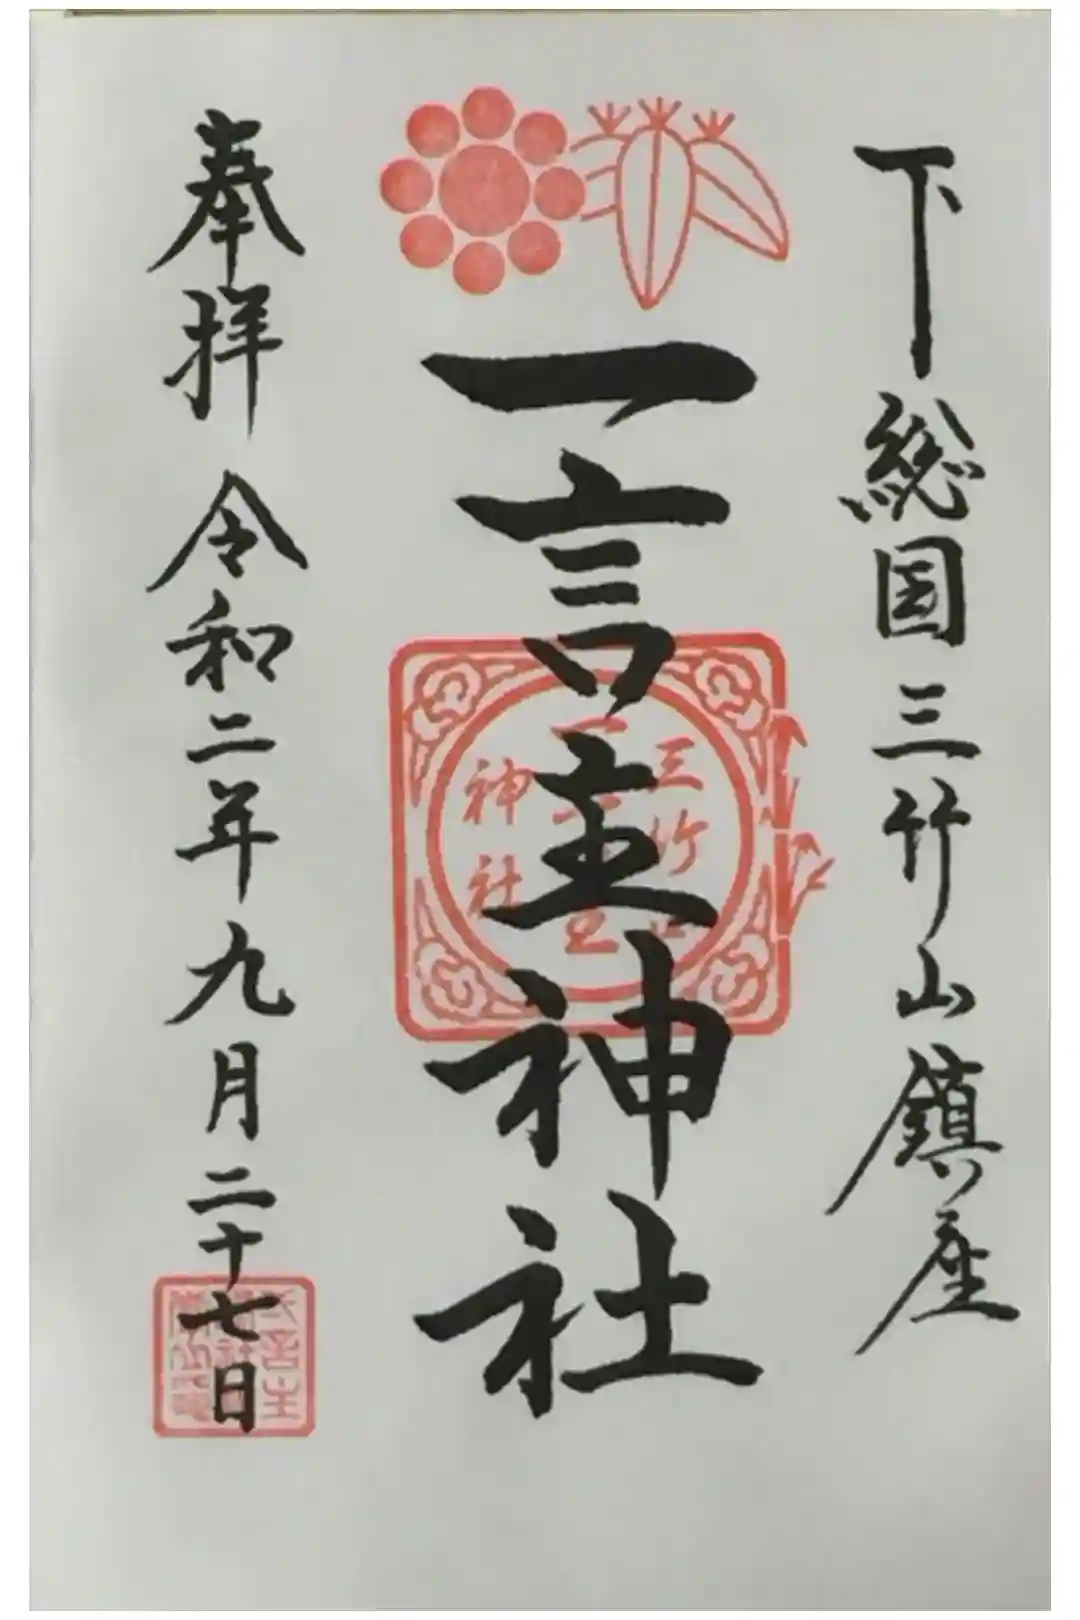 下総国三竹山鎮座
一言主神社
三竹山
一言主
神社
奉拝 令和二年九月二十七日